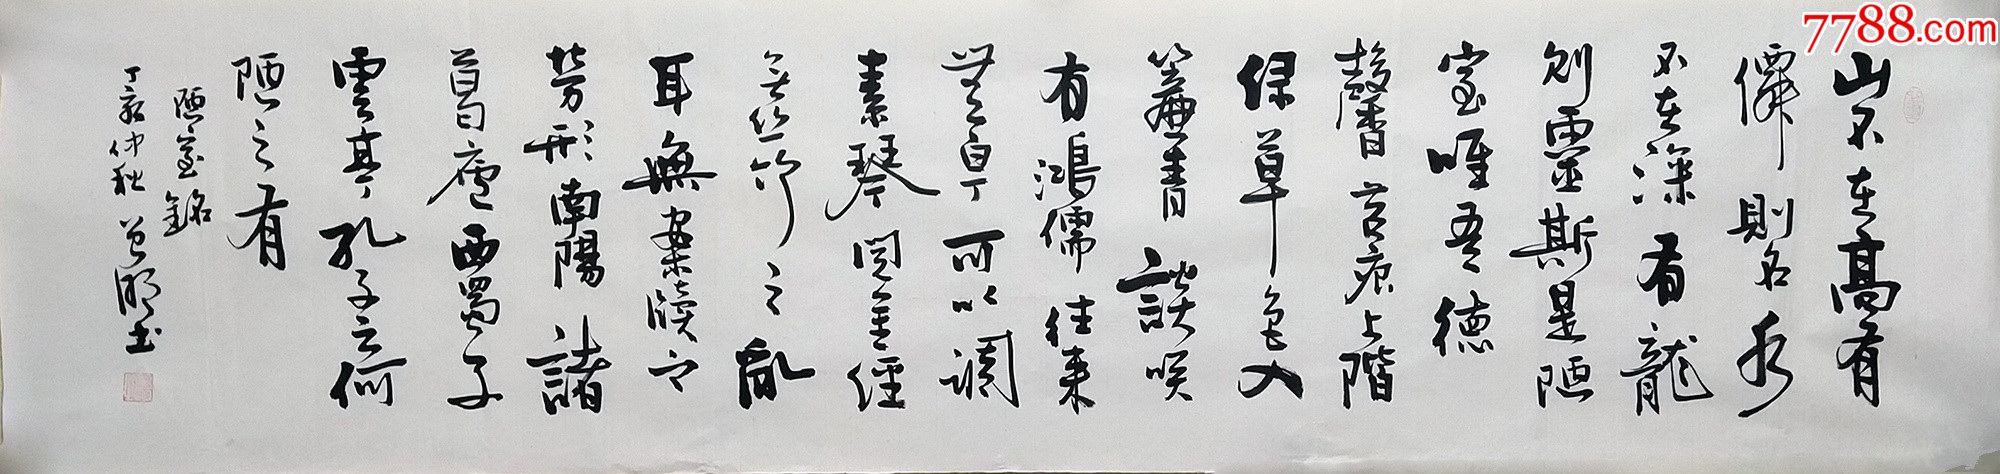 7788.com
山不在高有
僊則名水
不在深有龍
则靈斯是陋
室唯吾德
馨苔痕上階
緑草色入
簾青談咲
有鴻儒往来
無白丁可以調
素琴閱金經
無丝竹之亂
耳無案牘之
劳形南陽諸
葛廬西蜀子
雲亭孔子云何
陋之有
陋室銘
丁亥仲秋 书